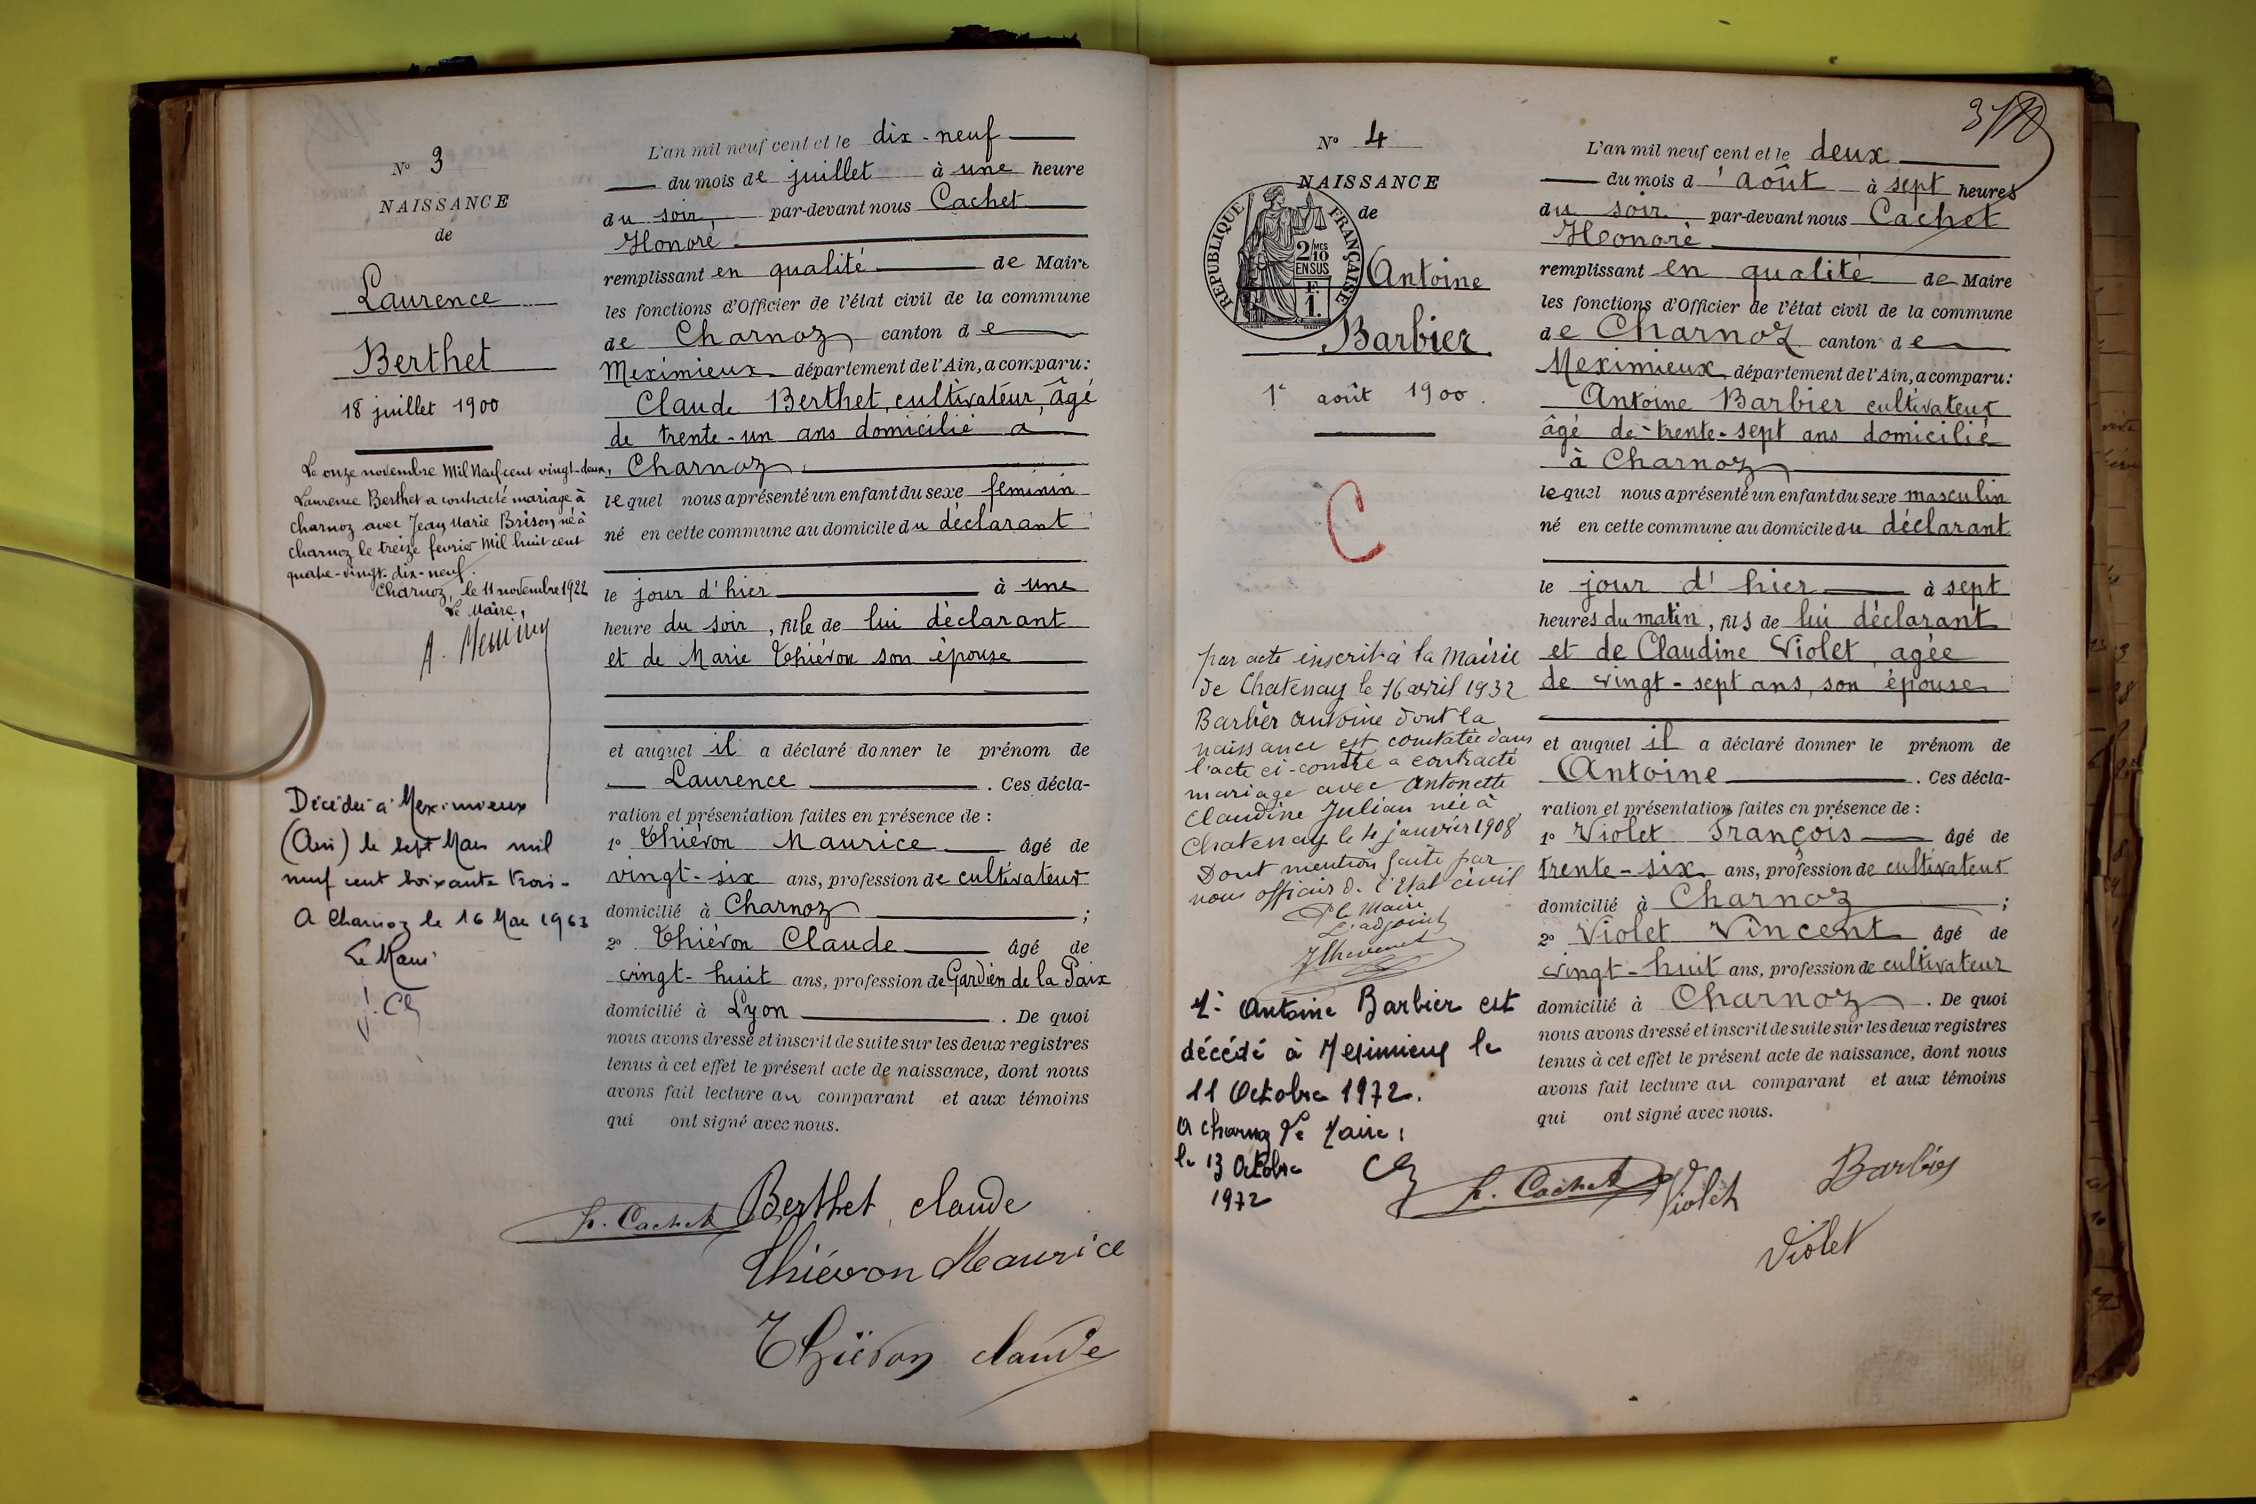 N° 3
NAISSANCE
de
Laurence
Berthet
18 juillet 1900
Le onze novembre Mil Neuf cent vingt-deux,
Laurence Berthet a contracté mariage à
Charnoz avec Jean Marie Brison né à
Charnoz le treize février Mil huit cent
quatre-vingt-dix-neuf.
Charnoz, le 11 novembre 1922
Le Maire,
Décédée à Meximieux
(Ain) le sept Mars mil
neuf cent soixante trois -
A Charnoz le 16 Mars 1963
Le Maire
L'an mil neuf cent et le dix-neuf
du mois de juillet à une heure
du soir, par-devant nous Cachet
Honoré
remplissant en qualité de Maire
les fonctions d'Officier de l'état civil de la commune
de Charnoz canton de
Meximieux département de l'Ain, a comparu:
Claude Berthet, cultivateur, âgé
de trente-un ans domicilié a
Charnoz,
lequel nous a présenté un enfant du sexe féminin
né en cette commune au domicile du déclarant
le jour d'hier à une
heure du soir, fille de lui déclarant
et de Marie Thiévon son épouse
et auquel il a déclaré donner le prénom de
Laurence . Ces décla-
ration et présentation faites en présence de :
1° Thiévon Maurice âgé de
vingt-six ans, profession de cultivateur
domicilié à Charnoz ;
2° Thiévon Claude âgé de
vingt-huit ans, profession de Gardien de la Paix
domicilié à Lyon . De quoi
nous avons dressé et inscrit de suite sur les deux registres
tenus à cet effet le présent acte de naissance, dont nous
avons fait lecture au comparant et aux témoins
qui ont signé avec nous.
h. Cachet Berthet claude
Thiévon Maurice
Thiévon claude
318
N° 4
NAISSANCE
de
RÉPUBLIQUE FRANÇAISE
2/10MES
EN SUS
F.
1.
Antoine
Barbier
1er août 1900.
C
par acte inscrit à la Mairie
de Chatenay le 16 avril 1932
Barbier Antoine dont la
naissance est constatée dans
l'acte ci-contre a contracté
mariage avec Antonette
Claudine Julian née à
Chatenay le 4 janvier 1908
Dont mention faite par
nous officier de l'Etat civil
Pr le Maire
L'adjoint
Antoine Barbier est
décédé à Meximieux le
11 Octobre 1972.
A Charnoz le Maire,
le 13 Octobre
1972
L'an mil neuf cent et le deux
du mois d'août à sept heures
du soir par-devant nous Cachet
Honoré
remplissant en qualité de Maire
les fonctions d'Officier de l'état civil de la commune
de Charnoz canton de
Meximieux, département de l'Ain, a comparu:
Antoine Barbier cultivateur
âgé de trente-sept ans domicilié
à Charnoz
lequel nous a présenté un enfant du sexe masculin
né en cette commune au domicile du déclarant
le jour d'hier à sept
heures du matin, fils de lui déclarant
et de Claudine Violet, agée
de vingt-sept ans, son épouse
et auquel il a déclaré donner le prénom de
Antoine . Ces décla-
ration et présentation faites en présence de :
1° Violet François âgé de
trente-six ans, profession de cultivateur
domicilié à Charnoz ;
2° Violet Vincent âgé de
vingt-huit ans, profession de cultivateur
domicilié à Charnoz . De quoi
nous avons dressé et inscrit de suite sur les deux registres
tenus à cet effet le présent acte de naissance, dont nous
avons fait lecture au comparant et aux témoins
qui ont signé avec nous.
h. Cachet Violet Barbier
Violet